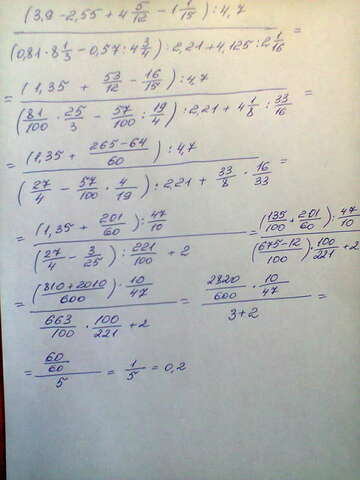 (3,9 - 2,55 + 4 5/12 - 1 1/15) : 4,7
(0,81 · 8 1/3 - 0,57 : 4 3/4) : 2,21 + 4,125 : 2 1/16 =
= (1,35 + 53/12 - 16/15) : 4,7
(81/100 · 25/3 - 57/100 : 19/4) : 2,21 + 4 1/8 : 33/16 =
= (1,35 + 265-64/60) : 4,7
(27/4 - 57/100 · 4/19) : 2,21 + 33/8 · 16/33 =
= (1,35 + 201/60) : 47/10
(27/4 - 3/25) : 221/100 + 2
= (135/100 + 201/60) : 47/10
(675-12/100) · 100/221 + 2
= (810+2010/600) · 10/47
663/100 · 100/221 + 2
= 2820/600 · 10/47
3+2 =
= 60/60
5 = 1/5 = 0,2